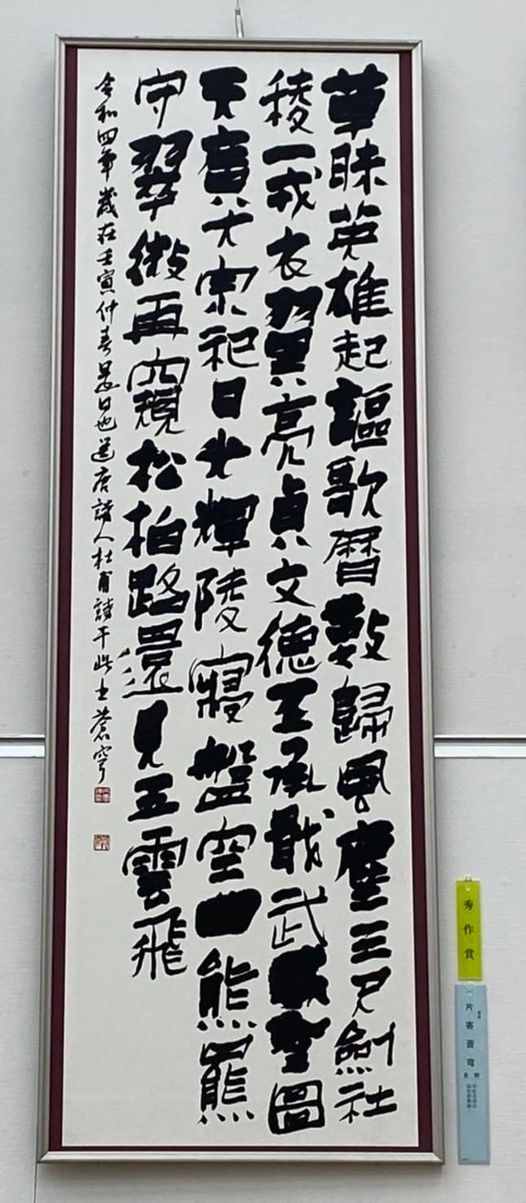 草昧英雄起謳歌暦數歸風塵三尺劍社
稷一戎衣翼亮貞文德丕承戢武威聖圖
天廣大宗祀日光輝陵寢盤空曲熊羆
守翠微再窺松柏路還見五雲飛
令和四年歲在壬寅仲春 日也選唐詩人杜甫詩于此 蒼穹
秀作賞
片寄蒼穹